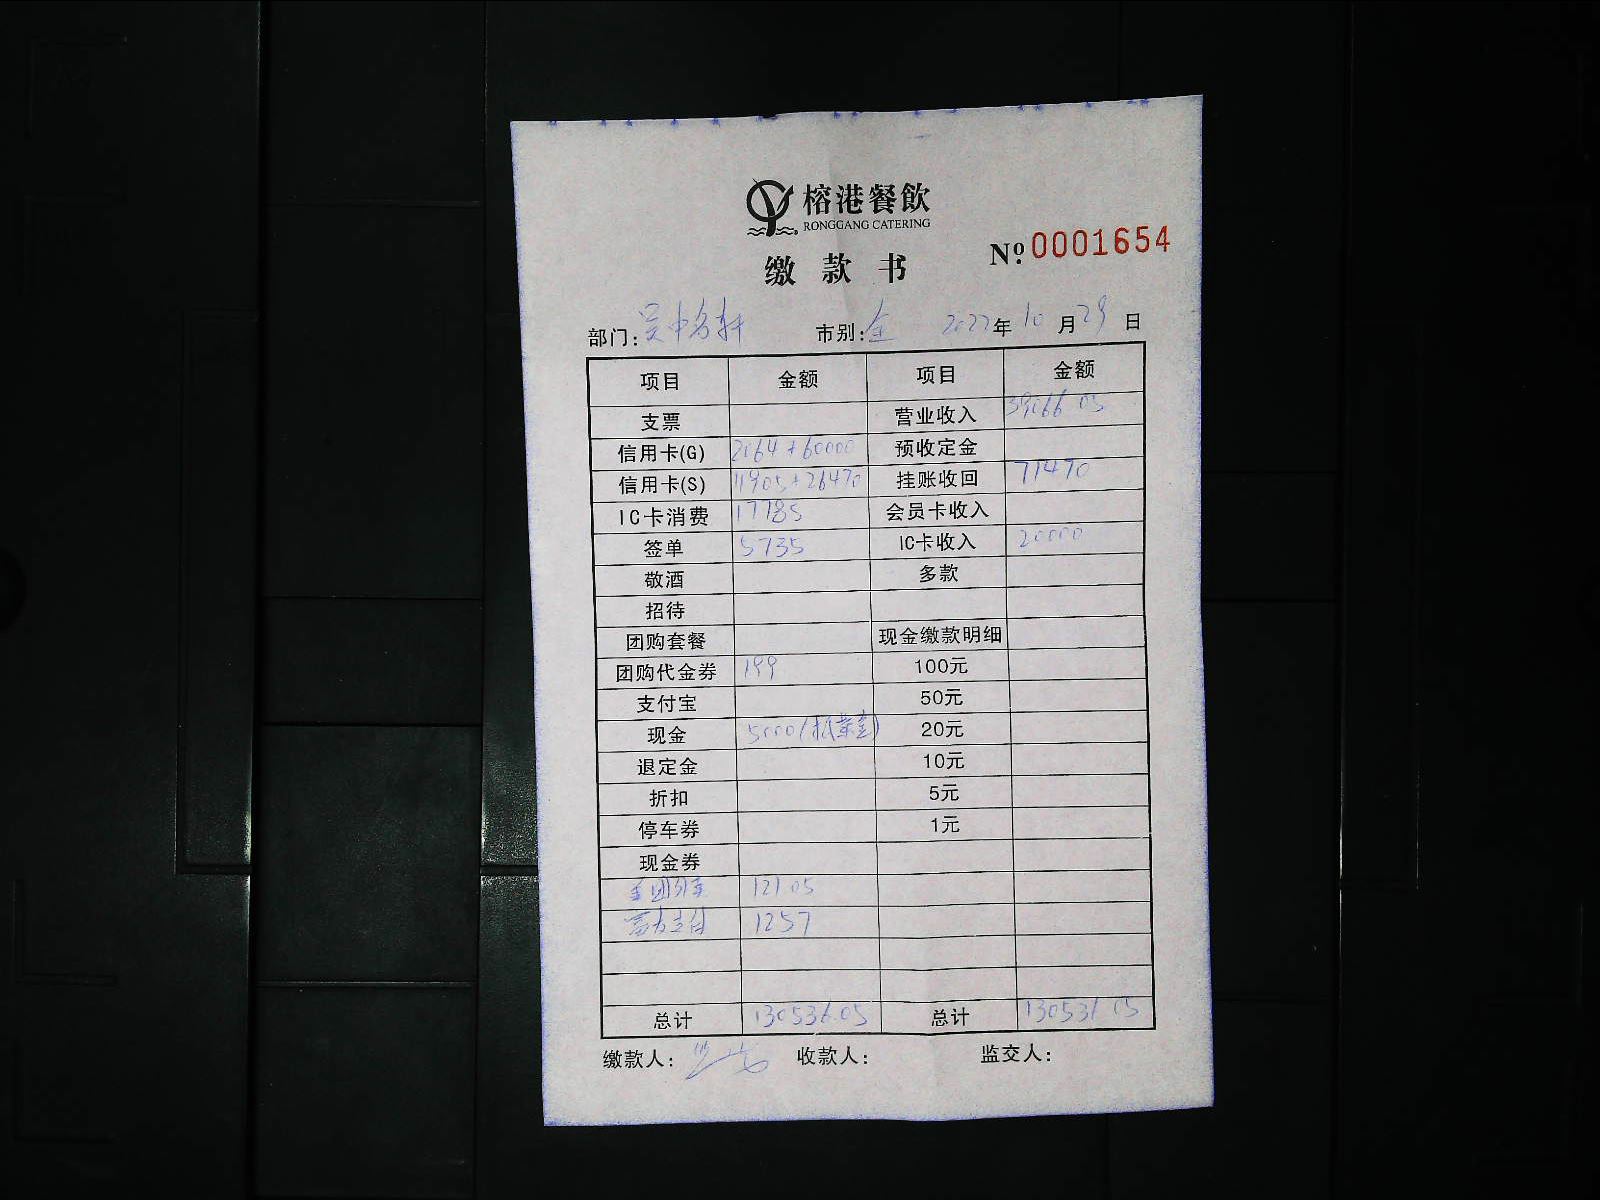 榕港餐飲
RONGGANG CATERING
缴款书 № 0001654
部门: 吴中名轩 市别: 全 2022年10月29日
项目 金额 项目 金额
支票 营业收入 39066.05
信用卡(G) 2064+60000 预收定金
信用卡(S) 11905+26470 挂账收回 71470
IC卡消费 17785 会员卡收入
签单 5735 IC卡收入 20000
敬酒 多款
招待
团购套餐 现金缴款明细
团购代金券 199 100元
支付宝 50元
现金 5000 20元
退定金 10元
折扣 5元
停车券 1元
现金券
美团外卖 121.05
官方支付 1257
总计 130536.05 总计 130536.05
缴款人: 收款人: 监交人: